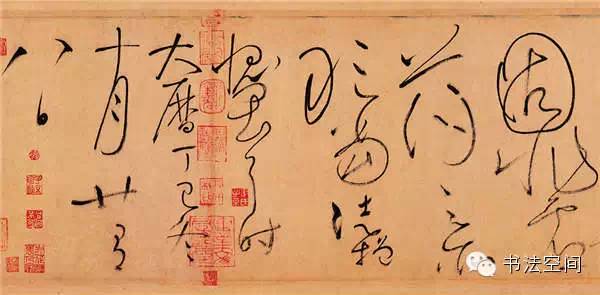 固非虛
薄之所
敢當徒增
愧畏耳時
大曆丁巳冬
十月廿有
八日
书法空间